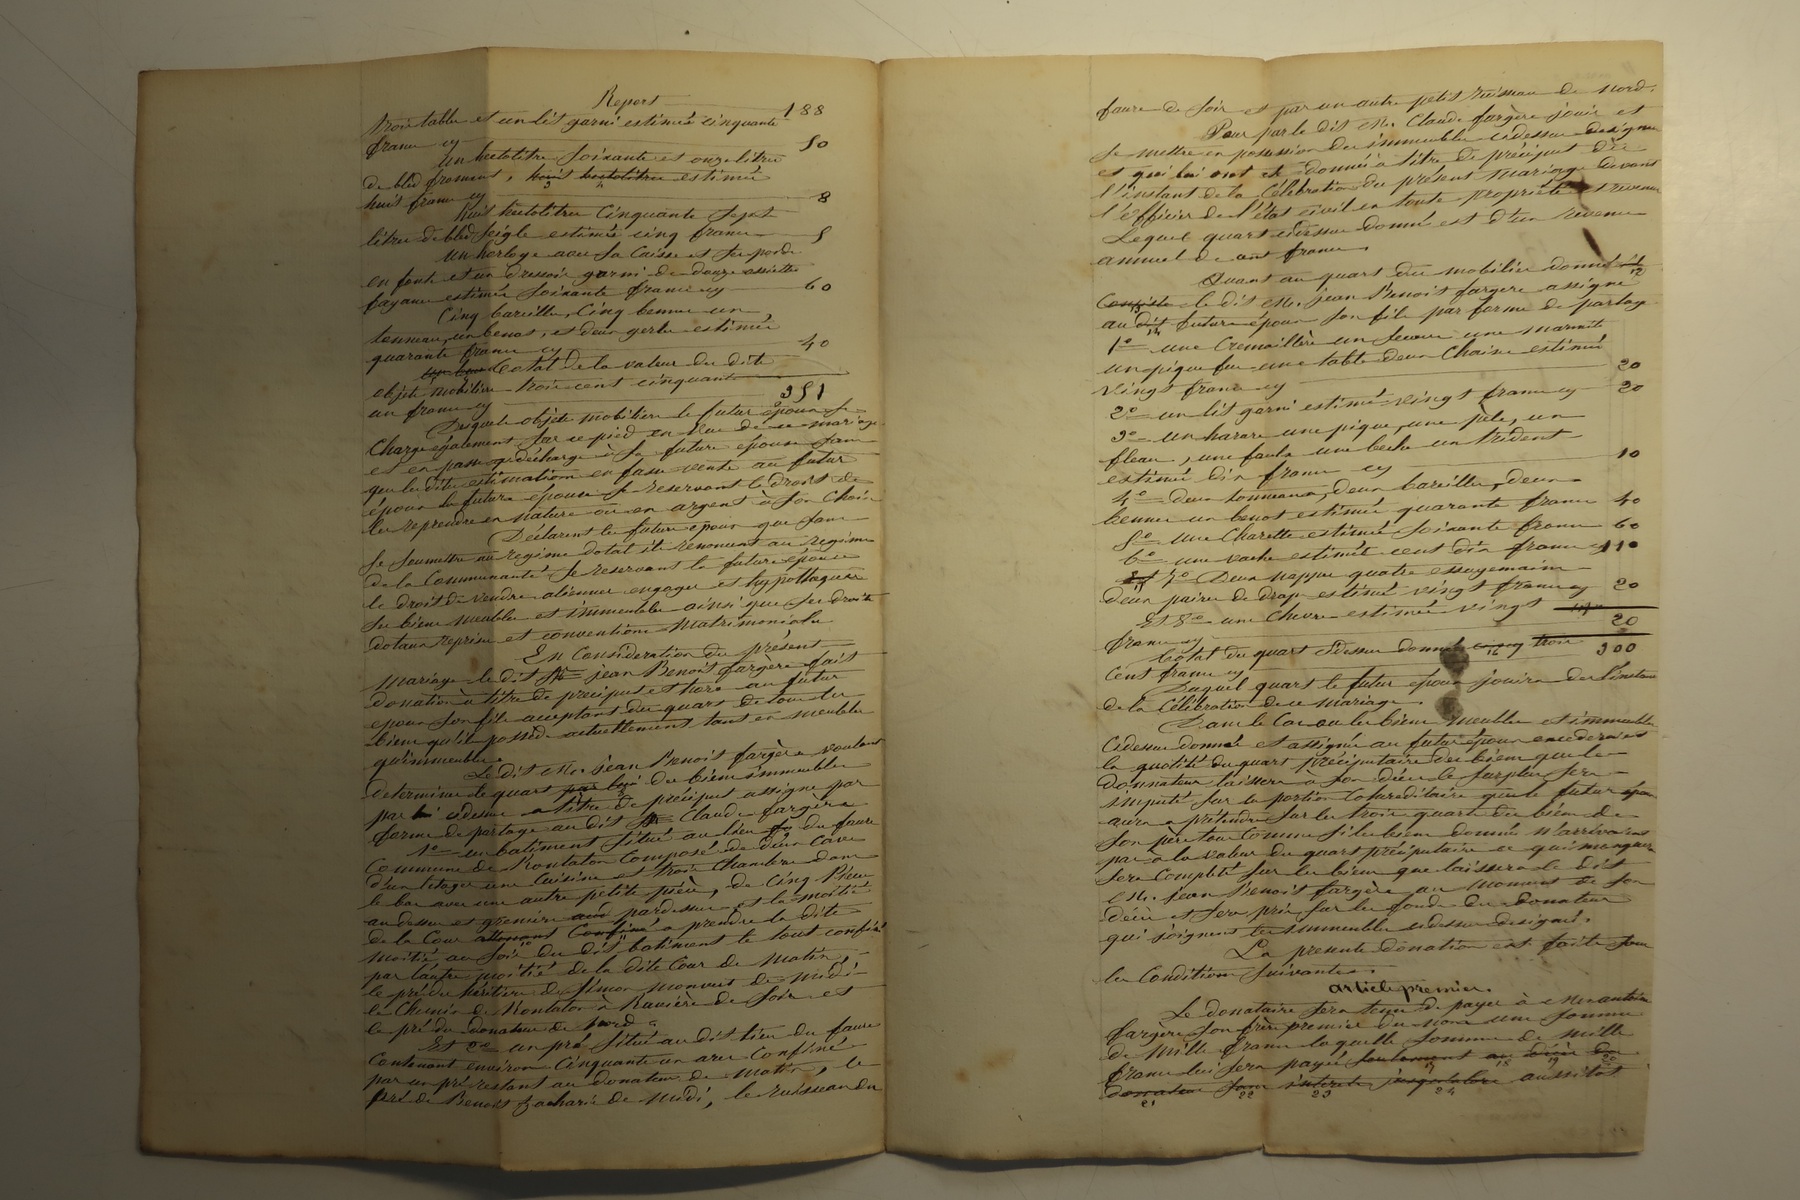 Report 188
trois table et un lit garni estimés cinquante
franc cy 50
Un hectolitre soixante et onze litres
de bled froment, huit hectolitres estimés
huit franc cy 8
Huit hectolitres cinquante sept
litres de bled seigle estimés cinq franc 5
Un horloge avec sa Caisse et ses poids
en fonte et un dressoir garni de douze assiettes
fayance estimés soixante franc cy 60
Cinq bareilles, Cinq bennes un
tonneau, un benot, et deux gerles estimés
quarante franc cy 40
Total de la valeur des dits
objets mobiliers trois cent cinquante
un franc cy 351
Desquels objets mobiliers le futur époux se
Charge également sur ce pied en vue de ce mariage
et en passe décharge à la future épouse sans
que la dite estimation en fasse vente au futur
époux la future épouse se reservant le droit de
les reprendre en nature ou en argent à son Choix
Déclarent les futurs époux que sans
se soumettre au regime dotal ils renoncent au regime
de la Communauté se reservant la future épouse
le droit de vendre aliéner engager et hypothequer
ses biens meubles et immeubles ainsi que ses droits
dotaux reprises et conventions Matrimoniales
En Consideration du présent
Mariage le dit Mr jean Benoit fargère fait
donation à titre de préciput et hors au futur
epoux son fils acceptant du quart de tous les
biens qu'il possède actuellement tant en meubles
qu'immeubles.
Le dit Mr. jean Benoit fargère voulant
determiner le quart par lui des biens immeubles
par lui cidessus a titre de préciput assigne par
forme de partage au dit Mr Claude fargère
1º un batiment situé au lieu du faure
Commune de Montaton Composé de deux Cave
d'un Etager une Cuisine et trois Chambres dans
le bas avec une autre petite pièce, de Cinq Pièces
au dessus et greniers pardessus et la moitié
de la Cour attenant Confiné a prendre la dite
moitié au soir du dit batiment le tout confiné
par l'autre moitié de la dite Cour de Matin,
le pré des héritiers de Simon Monvert de Midi
le Chemin de Montaton à Ravière de soir et
le pré du donateur de Nord.
Et 2º un pré situé au dit lieu du faure
Contenant environ Cinquante un ares Confiné
par un pré restant au donateur de Matin, le
pré de Benoit Zacharie de Midi, le ruisseau du
faure de soir et par un autre petit ruisseau de Nord.
Pour par le dit Mr. Claude fargère jouir et
se mettre en possession des immeubles cidessus designés
et qui lui ont été donnés à titre de préciput dès
l'instant de la Célébration du présent Mariage devant
l'officier de l'état civil en toute propriété et revenu
Lequel quart cidessus donné est d'un revenu
annuel de cent francs.
Quant au quart du mobilier donné
Consiste le dit Mr. jean Benoit fargère assigne
au dit futur époux son fils par forme de partage
1º une Cremaillère un une marmite
un pique feu une table deux Chaises estimés
vingt franc cy 20
2º un lit garni estimé vingt franc cy 20
3º un harare une pique, une pèle, un
fleau, une faulx une beche un trident
estimés dix franc cy 10
4º deux tonneaux, deux bareilles, deux
bennes un benot estimés quarante franc 40
5º une Charette estimée soixante franc 60
6º une vache estimée cent dix franc 110
7º Deux nappes quatre essuyemains
deux paires de draps estimés vingt franc cy 20
Et 8º une Chevre estimée vingt
franc cy 20
Total du quart cidessus donné trois
Cent franc cy 300
Duquel quart le futur époux jouira de l'instant
de la Célébration de ce Mariage.
Dans le Cas ou les biens meubles et immeubles
Cidessus donnés et assignés au futur époux excederaient
la quotité du quart préciputaire des biens que le
Donnateur laissera à son décès le surplus sera
imputé sur la portion Cohereditaire que le futur époux
aura a prétendre sur les trois quarts des biens de
son père tout Comme si les biens donnés n'arrivaient
pas à la valeur du quart préciputaire ce qui manquera
sera Complété sur les biens que laissera le dit
Mr. jean Benoit fargère au Moment de son
décès et sera pris sur les fonds du Donateur
qui joignent les immeubles cidessus designés.
La presente donation est faite sous
les Conditions suivantes.
article premier.
Le donataire sera tenu de payer à Mr antoine
fargère son frère premier du nom une somme
de Mille francs laquelle somme de Mille
francs lui sera payée seulement au décès du
donateur sans intérêts jusqu'alors aussitôt